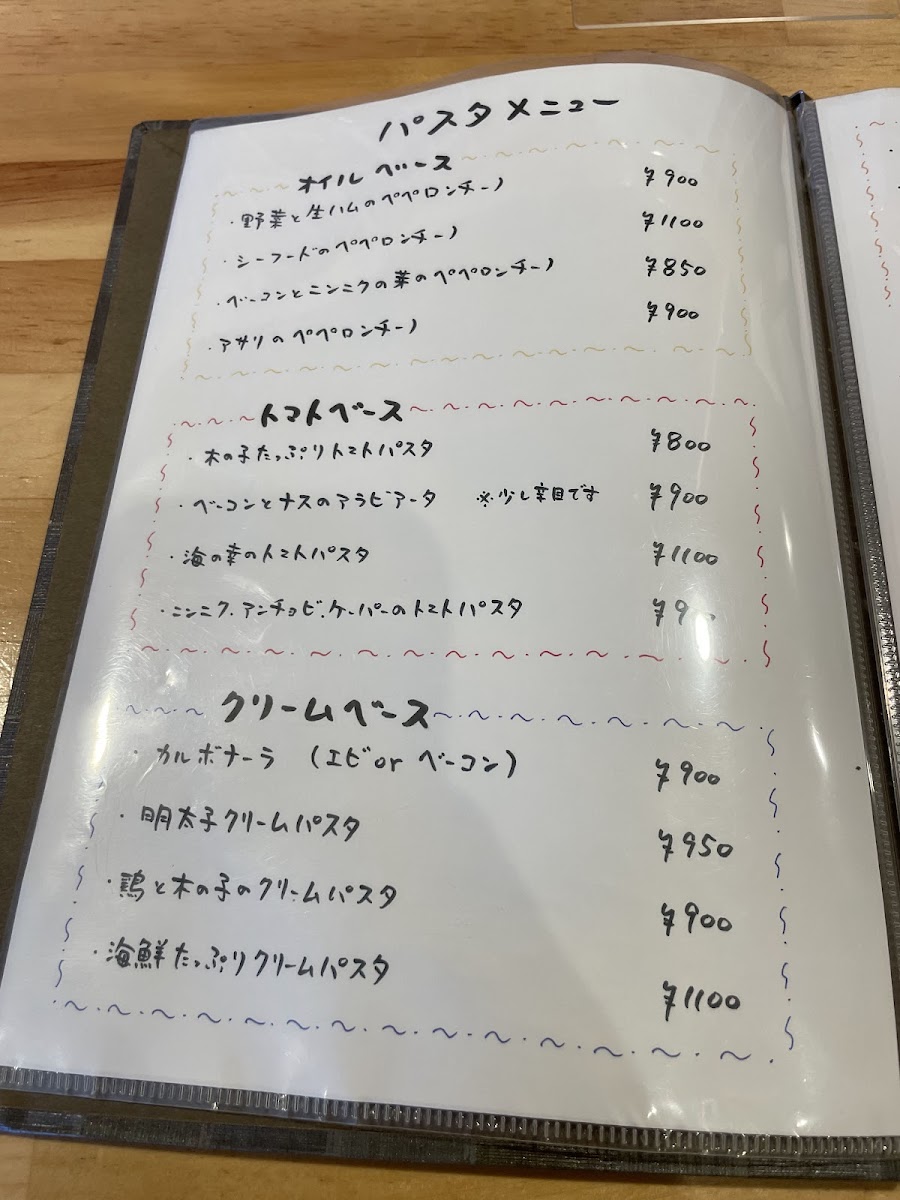 パスタメニュー
オイルベース
・野菜と生ハムのペペロンチーノ ¥900
・シーフードのペペロンチーノ ¥1100
・ベーコンとニンニクの葉のペペロンチーノ ¥850
・アサリのペペロンチーノ ¥900
トマトベース
・木の子たっぷりトマトパスタ ¥800
・ベーコンとナスのアラビアータ ※少し辛目です ¥900
・海の幸のトマトパスタ ¥1100
・ニンニク.アンチョビ.ケーパーのトマトパスタ
クリームベース
・カルボナーラ (エビor ベーコン) ¥900
・明太子クリームパスタ ¥950
・鶏と木の子のクリームパスタ ¥900
・海鮮たっぷりクリームパスタ ¥1100